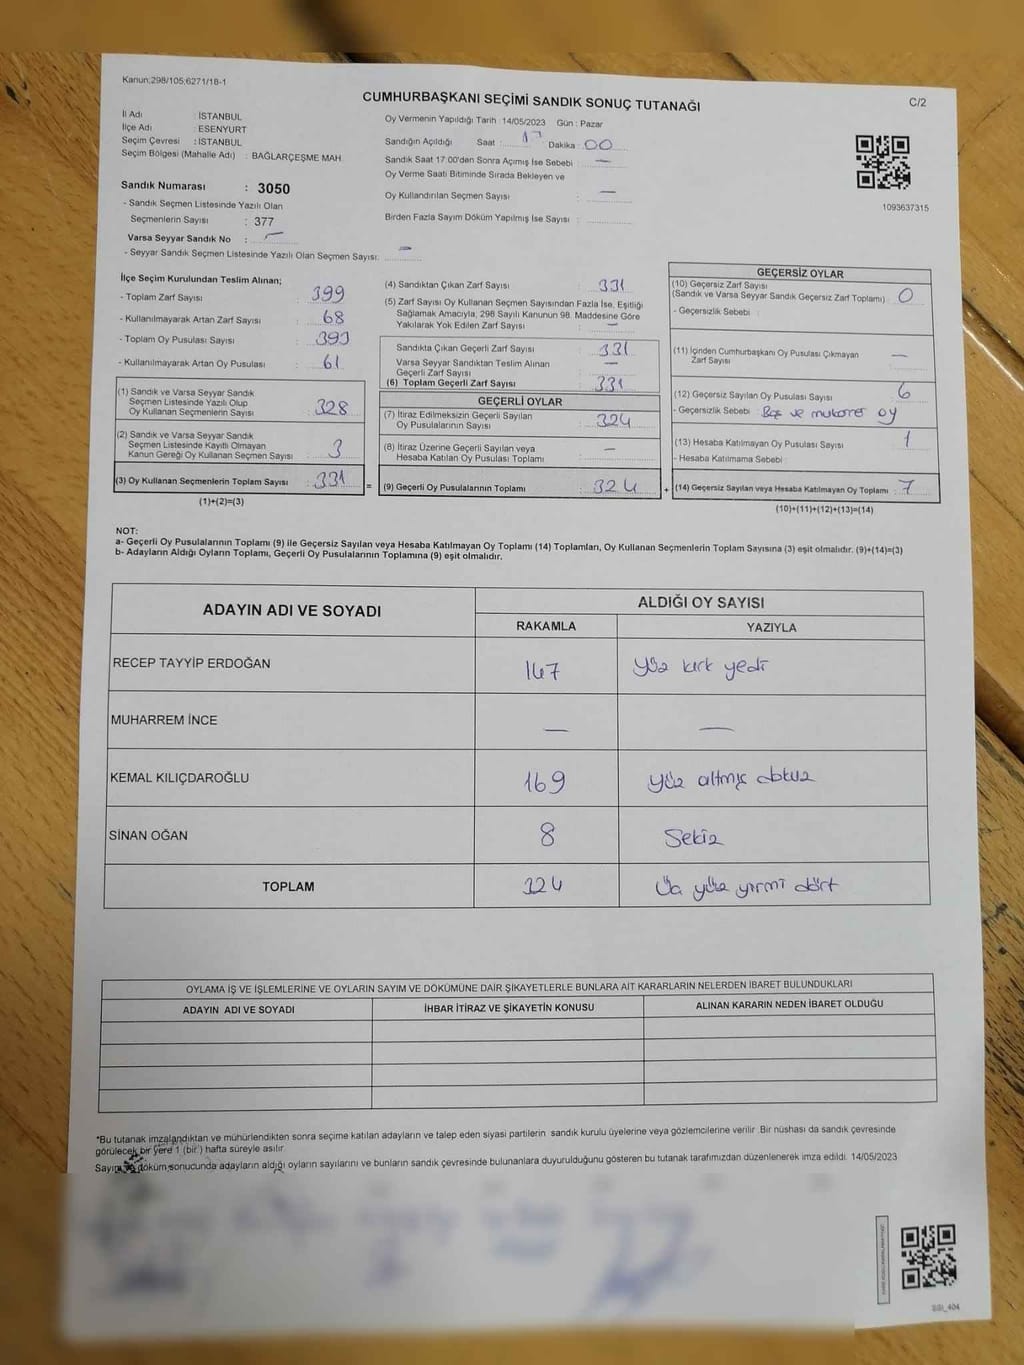 Kanun;298/105;6271/18-1
CUMHURBAŞKANI SEÇİMİ SANDIK SONUÇ TUTANAĞI
C/2
İl Adı : İSTANBUL
İlçe Adı : ESENYURT
Seçim Çevresi : İSTANBUL
Seçim Bölgesi (Mahalle Adı) : BAĞLARÇEŞME MAH.
Sandık Numarası : 3050
- Sandık Seçmen Listesinde Yazılı Olan
Seçmenlerin Sayısı : 377
Varsa Seyyar Sandık No : —
- Seyyar Sandık Seçmen Listesinde Yazılı Olan Seçmen Sayısı: —
Oy Vermenin Yapıldığı Tarih : 14/05/2023 Gün : Pazar
Sandığın Açıldığı Saat : 17 Dakika : 00
Sandık Saat 17:00'den Sonra Açımış İse Sebebi : —
Oy Verme Saati Bitiminde Sırada Bekleyen ve
Oy Kullandırılan Seçmen Sayısı : —
Birden Fazla Sayım Döküm Yapılmış İse Sayısı :
1093637315
İlçe Seçim Kurulundan Teslim Alınan;
- Toplam Zarf Sayısı : 399
- Kullanılmayarak Artan Zarf Sayısı : 68
- Toplam Oy Pusulası Sayısı : 393
- Kullanılmayarak Artan Oy Pusulası : 61
(1) Sandık ve Varsa Seyyar Sandık
Seçmen Listesinde Yazılı Olup
Oy Kullanan Seçmenlerin Sayısı : 328
(2) Sandık ve Varsa Seyyar Sandık
Seçmen Listesinde Kayıtlı Olmayan
Kanun Gereği Oy Kullanan Seçmen Sayısı : 3
(3) Oy Kullanan Seçmenlerin Toplam Sayısı : 331 =
(1)+(2)=(3)
(4) Sandıktan Çıkan Zarf Sayısı : 331
(5) Zarf Sayısı Oy Kullanan Seçmen Sayısından Fazla İse, Eşitliği
Sağlamak Amacıyla, 298 Sayılı Kanunun 98. Maddesine Göre
Yakılarak Yok Edilen Zarf Sayısı : —
Sandıkta Çıkan Geçerli Zarf Sayısı : 331
Varsa Seyyar Sandıktan Teslim Alınan
Geçerli Zarf Sayısı : —
(6) Toplam Geçerli Zarf Sayısı : 331
GEÇERLİ OYLAR
(7) İtiraz Edilmeksizin Geçerli Sayılan
Oy Pusulalarının Sayısı : 324
(8) İtiraz Üzerine Geçerli Sayılan veya
Hesaba Katılan Oy Pusulası Toplamı : —
(9) Geçerli Oy Pusulalarının Toplamı : 324 +
GEÇERSİZ OYLAR
(10) Geçersiz Zarf Sayısı
(Sandık ve Varsa Seyyar Sandık Geçersiz Zarf Toplamı) : 0
- Geçersizlik Sebebi :
(11) İçinden Cumhurbaşkanı Oy Pusulası Çıkmayan
Zarf Sayısı : —
(12) Geçersiz Sayılan Oy Pusulası Sayısı : 6
- Geçersizlik Sebebi : Boş ve mükerrer oy
(13) Hesaba Katılmayan Oy Pusulası Sayısı : 1
- Hesaba Katılmama Sebebi :
(14) Geçersiz Sayılan veya Hesaba Katılmayan Oy Toplamı : 7
(10)+(11)+(12)+(13)=(14)
NOT:
a- Geçerli Oy Pusulalarının Toplamı (9) ile Geçersiz Sayılan veya Hesaba Katılmayan Oy Toplamı (14) Toplamları, Oy Kullanan Seçmenlerin Toplam Sayısına (3) eşit olmalıdır. (9)+(14)=(3)
b- Adayların Aldığı Oyların Toplamı, Geçerli Oy Pusulalarının Toplamına (9) eşit olmalıdır.
ADAYIN ADI VE SOYADI
ALDIĞI OY SAYISI
RAKAMLA YAZIYLA
RECEP TAYYİP ERDOĞAN 147 Yüz kırk yedi
MUHARREM İNCE — —
KEMAL KILIÇDAROĞLU 169 Yüz altmış dokuz
SİNAN OĞAN 8 Sekiz
TOPLAM 324 Üç yüz yirmi dört
OYLAMA İŞ VE İŞLEMLERİNE VE OYLARIN SAYIM VE DÖKÜMÜNE DAİR ŞİKAYETLERLE BUNLARA AİT KARARLARIN NELERDEN İBARET BULUNDUKLARI
ADAYIN ADI VE SOYADI İHBAR İTİRAZ VE ŞİKAYETİN KONUSU ALINAN KARARIN NEDEN İBARET OLDUĞU
*Bu tutanak imzalandıktan ve mühürlendikten sonra seçime katılan adayların ve talep eden siyasi partilerin sandık kurulu üyelerine veya gözlemcilerine verilir. Bir nüshası da sandık çevresinde
görülecek bir yere 1 (bir) hafta süreyle asılır.
Sayım ve döküm sonucunda adayların aldığı oyların sayılarını ve bunların sandık çevresinde bulunanlara duyurulduğunu gösteren bu tutanak tarafımızdan düzenlenerek imza edildi. 14/05/2023